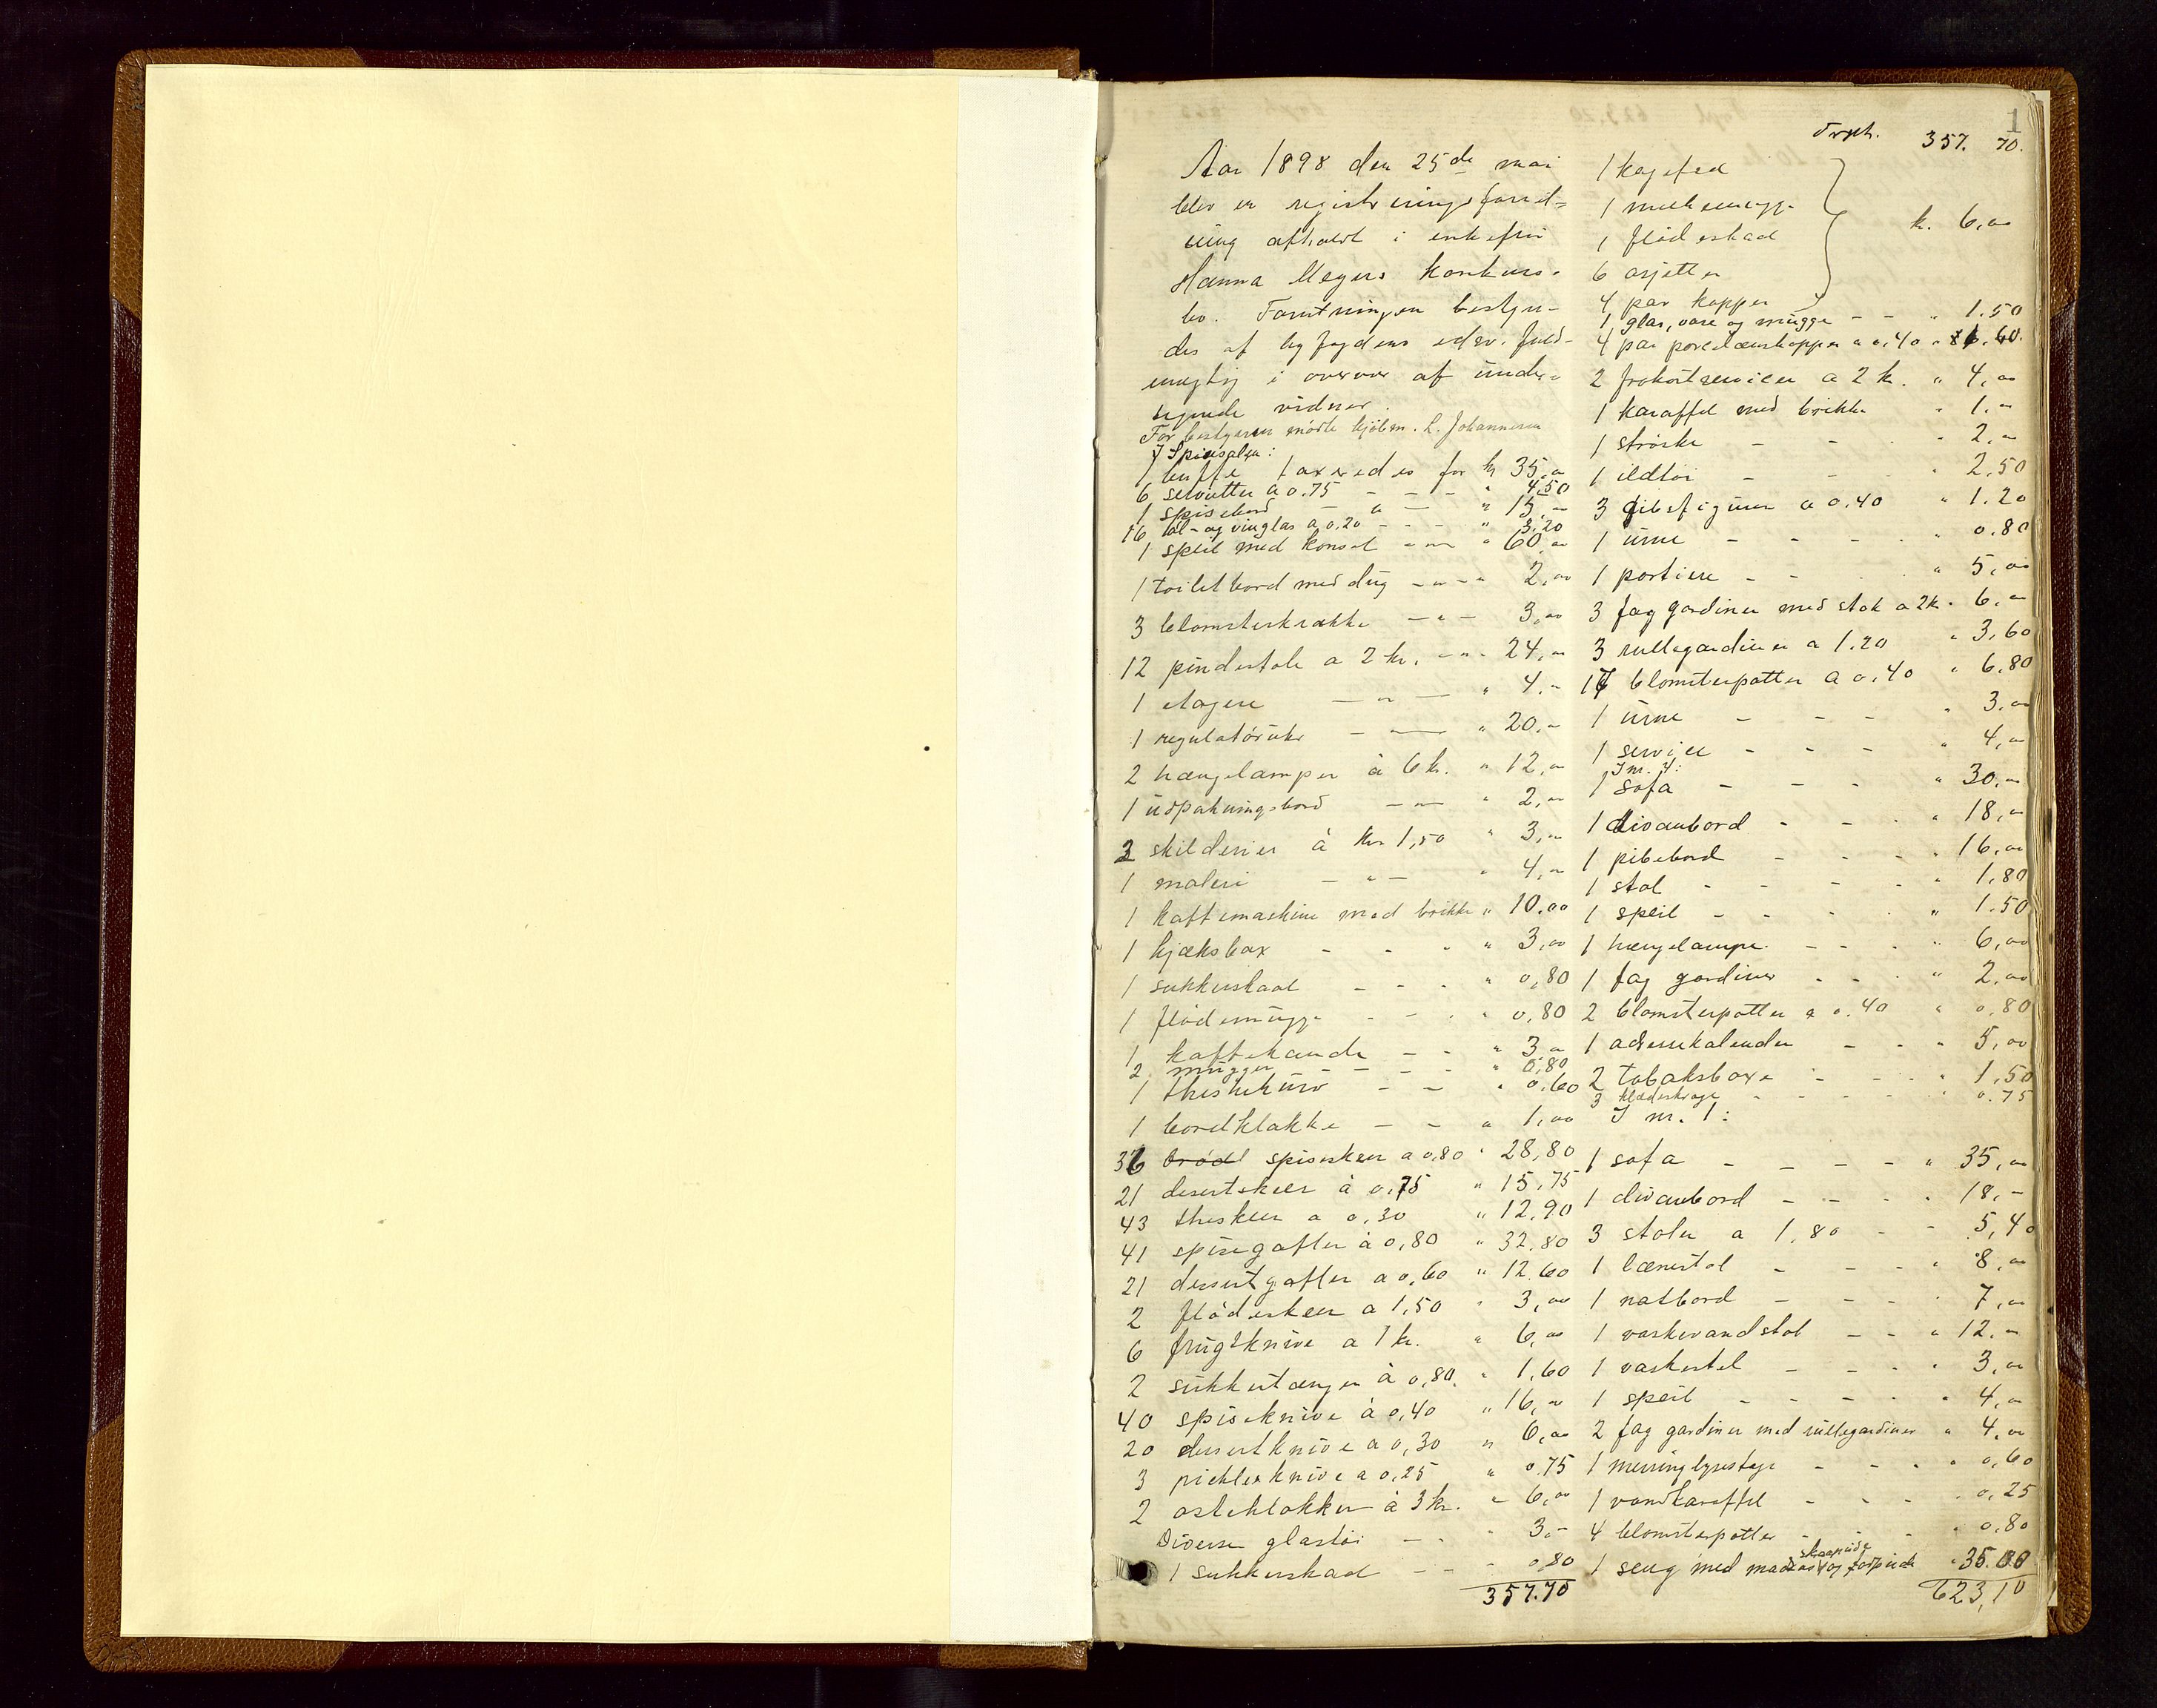 1
Aar 1898 den 25de mai
blev en registreringsforret=
ning afholdt i enkefru
Hanna Meyers konkurs-
bo. Forretningen bestyre-
des af byfogdens edsv. fuld-
mægtig i overvær af under-
tegnede vidner.
For bestyreren mødte kjøbm. L. Johannesen
I Spisesalen:
1 buffe taxeredes for kr 35,00
6 servietter a 0.75 - - - " 4,50
1 spisebord - " - " 15,-
16 øl- og vinglas a 0.20 - - - " 3,20
1 speil med konsol - " - " 60,00
1 toiletbord med dug - " - " 2,00
3 blomsterkrakke - " - 3,00
12 pindestole a 2 kr. - " - 24,00
1 etagere - " - " 4,-
1 regulatøruhr - " - " 20,-
2 hængelamper à 6 kr. " 12,00
1 udpakningsbord - " - " 2,00
2 skilderier à kr 1,50 " 3,00
1 maleri - " - " 4,00
1 kaffemaskine med brikke " 10,00
1 kjæksbox - - - " 3,00
1 sukkerskaal - - - " 0,80
1 flødemugge - - - " 0,80
1 kaffekande - - " 3,00
2 mugger - - - - " 0,80
1 theskekurv - - " 0,60
1 bordklokke - - " 1,00
36 spiseskeer a 0,80 " 28,80
21 desertskeer à 0,75 " 15,75
43 theskeer a 0,30 " 12,90
41 spisegafler à 0,80 " 32,80
21 dessertgafler a 0,60 " 12,60
2 flødeskeer a 1,50 " 3,00
6 frugtknive a 1 kr. " 6,00
2 sukkertænger à 0,80. " 1,60
40 spiseknive à 0,40 " 16,00
20 dessertknive a 0,30 " 6,00
3 picklesknive a 0,25 " 0,75
2 osteklokker à 3 kr. " 6,00
Diverse glastøi - - " 3,-
1 sukkerskaal - - - 0,80
357.70
Trsp. 357. 70.
1 kagefad
1 melkemugge
1 flødeskaal kr. 6,00
6 asjetter
4 par kopper
1 glas, vase og mugge - - " 1.50
4 par porcelænskopper a 0,40 " 1,60.
2 frokostservicer a 2 kr. " 4,00
1 karaffel med brikke " 1.-
1 strøske - - " 2,00
1 ildtøi - - " 2,50
3 gibsfigurer a 0,40 " 1.20
1 urne - - - " 0.80
1 portiere - - " 5,00
3 fag gardiner med stok a 2 kr. 6,00
3 rullegardiner a 1.20 " 3,60
17 blomsterpotter a 0,40 " 6,80
1 urne - - - " 3,00
1 service - - - " 4,00
I nr. 4:
1 sofa - - - " 30,00
1 divanbord - - - " 18,00
1 pibebord - - - " 16,00
1 stol - - - - " 1,80
1 speil - - - - " 1.50
1 hængelampe - - - " 6,00
1 fag gardiner - - - " 2,00
2 blomsterpotter a 0.40 " 0,80
1 adressekalender - - " 5,00
2 tobaksboxe - - - " 1,50
3 - - - - 0.75
I nr. 1:
1 sofa - - - - " 35,00
1 divanbord - - - " 18,-
3 stoler a 1,80 - - 5,40
1 lænestol - - - " 8,00
1 natbord - - - " 7,00
1 vaskevandstol - - " 12,00
1 vaskestel - - - " 3,00
1 speil - - - - " 4,00
2 fag gardiner med rullegardiner " 4,00
1 messinglysestage - - - " 0,60
1 vandkaraffel - - - " 0,25
4 blomsterpotter - - " 0,80
1 seng med og " 35.00
623,10